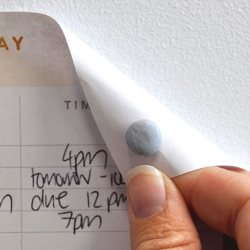 AY
TIM
4pm
tomorrow - 10
due 12 pm
7pm